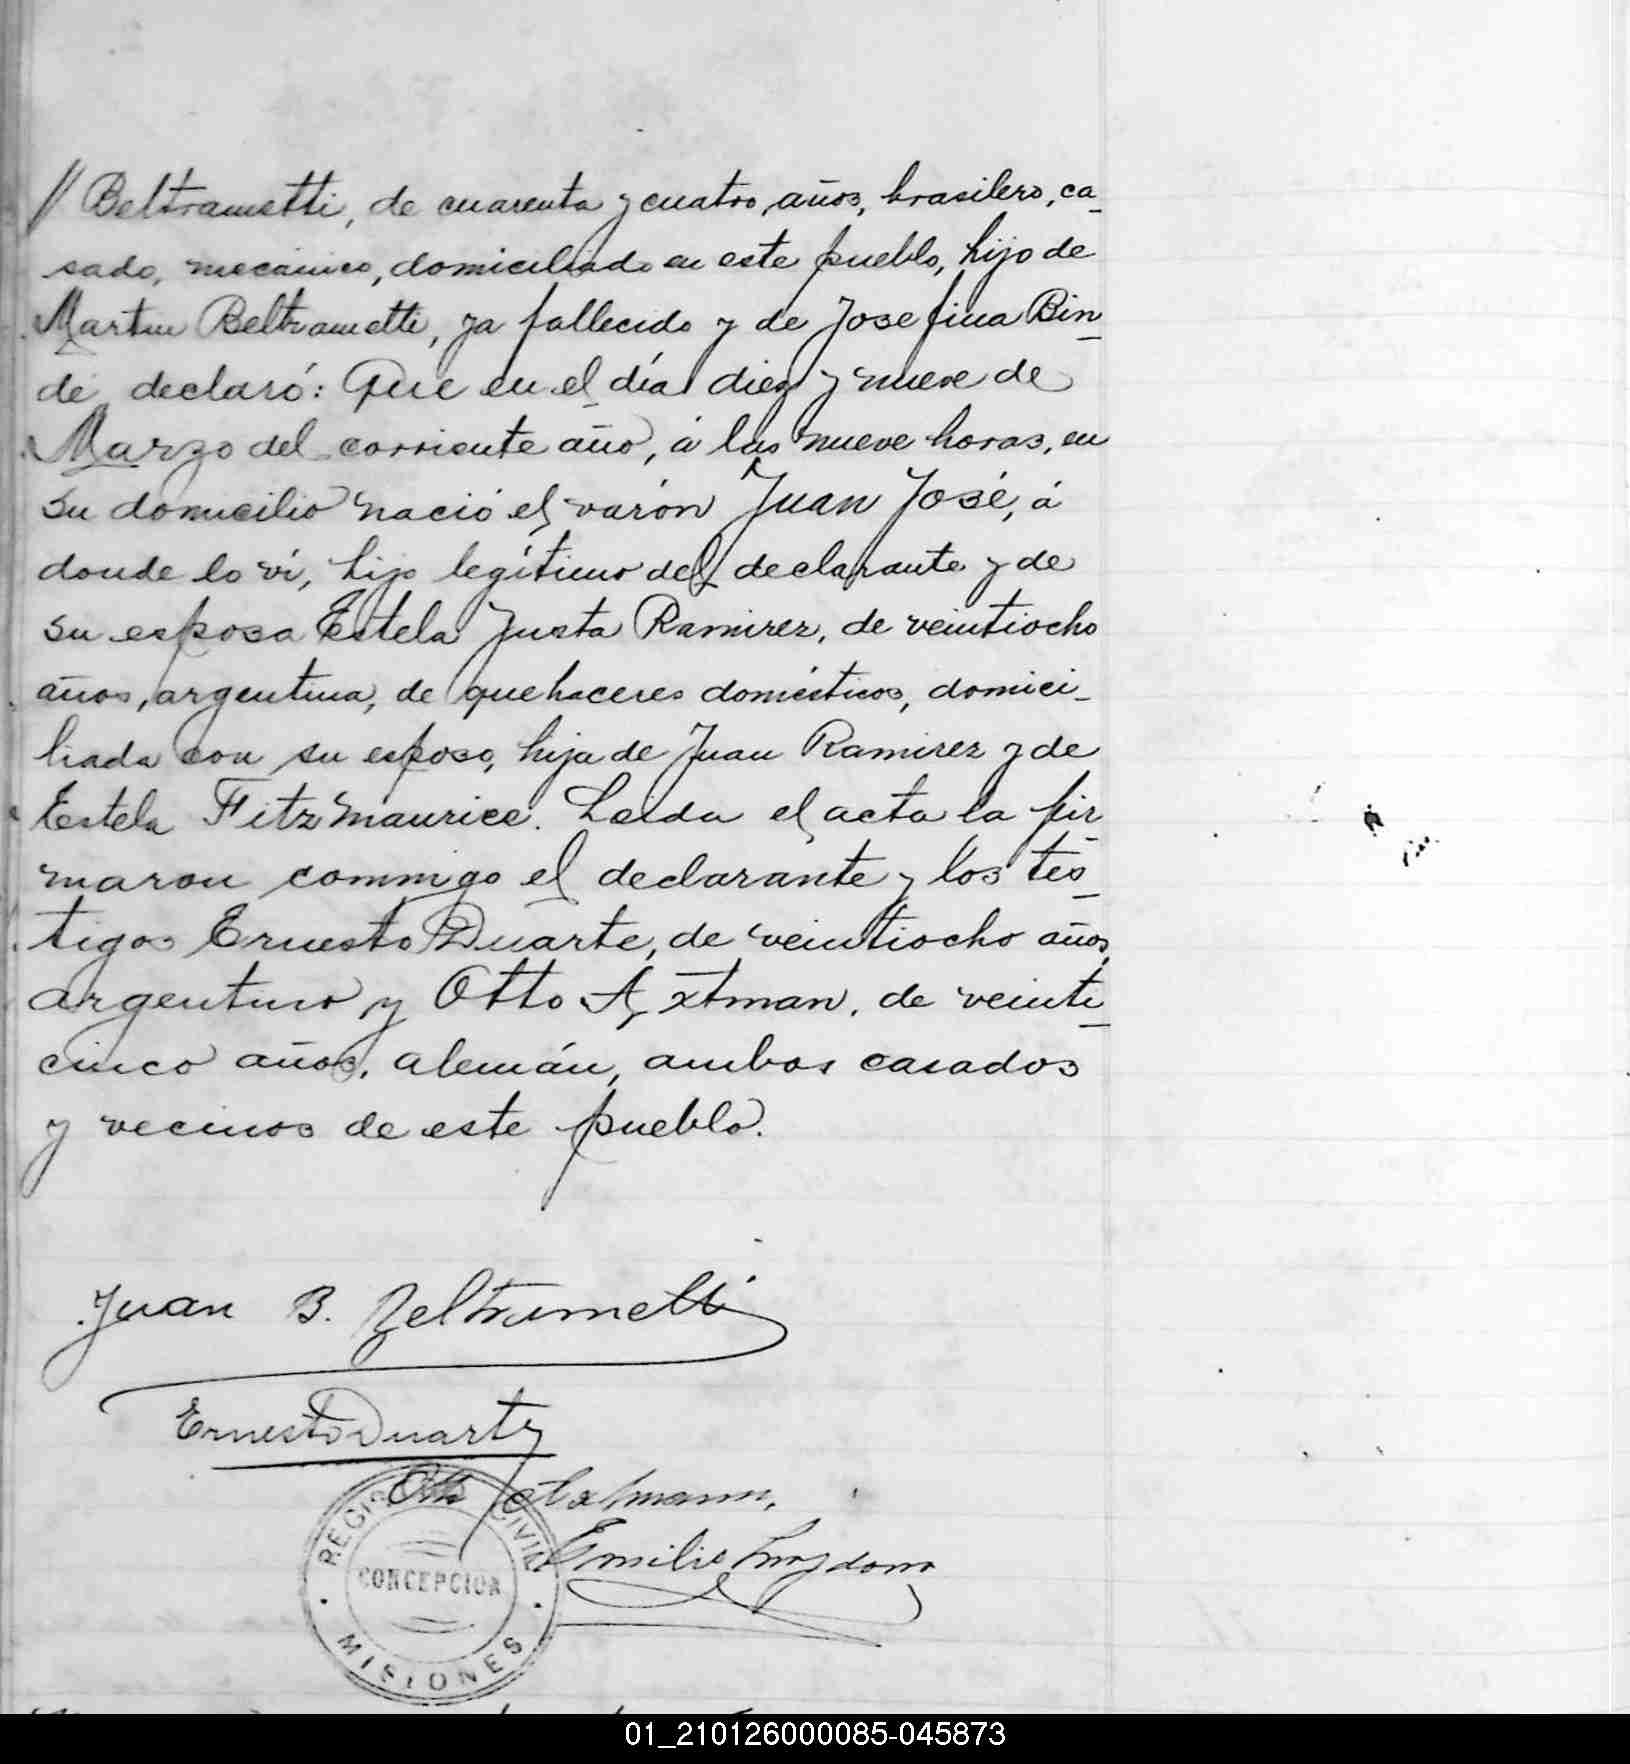 // Beltrametti, de cuarenta y cuatro años, brasilero, ca-
sado, mecánico, domiciliado en este pueblo, hijo de
Martin Beltrametti, ya fallecido y de Josefina Bin-
dé declaró: Que en el día diez y nueve de
Marzo del corriente año, á las nueve horas, en
su domicilio nació el varón Juan José, á
donde lo ví, hijo legítimo del declarante y de
su esposa Estela Justa Ramirez, de veintiocho
años, argentina, de quehaceres domésticos, domici-
liada con su esposo, hija de Juan Ramirez y de
Estela Fitz Maurice. Leida el acta la fir-
maron conmigo el declarante y los tes-
tigos Ernesto Duarte, de veintiocho años,
argentino y Otto Axtman, de veinti-
cinco años, alemán, ambos casados
y vecinos de este pueblo.
Juan B. Beltrametti
Ernesto Duarte
Otto Axtmann,
Emilio
REGISTRO CIVIL
CONCEPCION
MISIONES
01_210126000085-045873